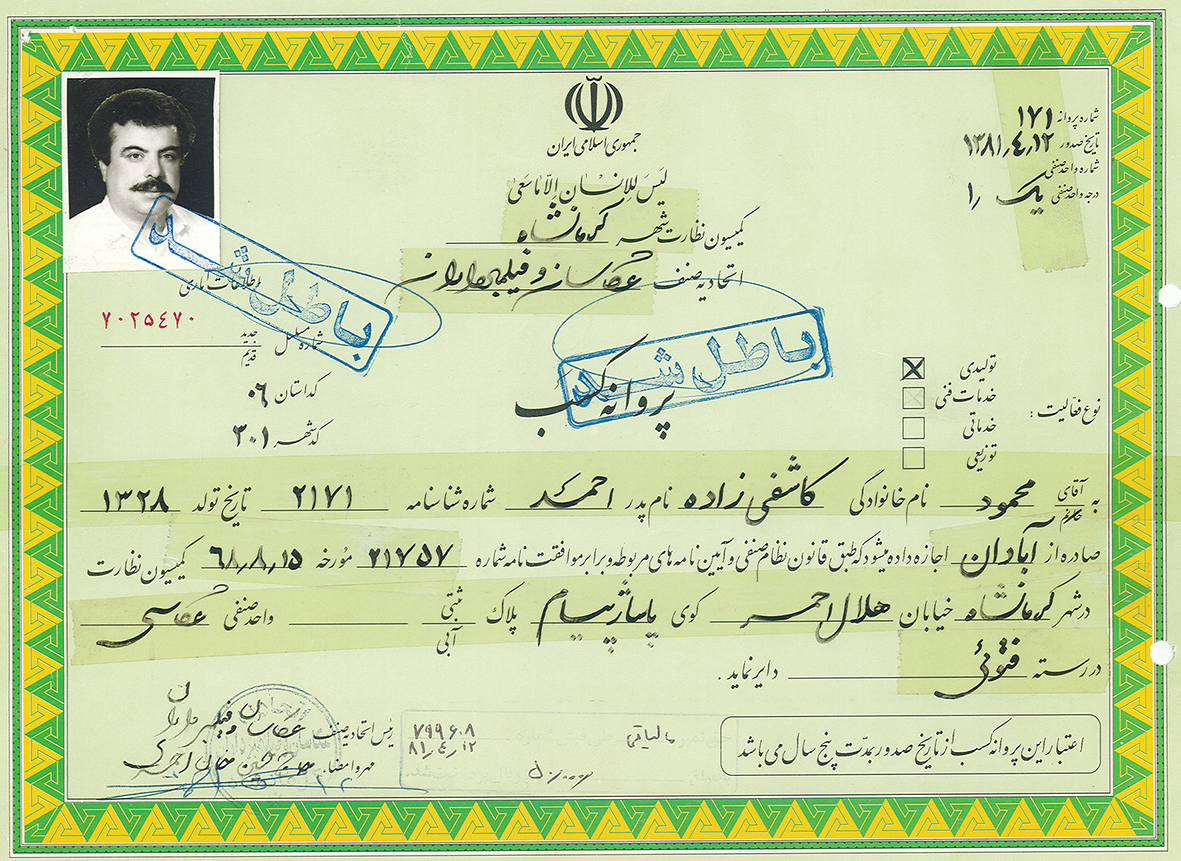 جمهوری اسلامی ایران
لیس للانسان الا ما سعی
شماره پروانه ۱۷۱
تاریخ صدور ۱۳۸۱٫۴٫۱۲
شماره واحد صنفی
درجه واحد صنفی یک ۱٫
کمیسیون نظارت شهر کرمانشاه
اتحادیه صنف عکاسان و فیلمبرداران
باطل شد
باطل شد
اطلاعات آماری
۷۰۲۵۴۷۰
شماره مسلسل جدید قدیم
کد استان ۰۶
کد شهر ۳۰۱
پروانه کسب
نوع فعالیت :
تولیدی
خدمات فنی
خدماتی
توزیعی
به آقای خانم محمود نام خانوادگی کاشفی زاده نام پدر احمد شماره شناسنامه ۲۱۷۱ تاریخ تولد ۱۳۲۸
صادره از آبادان اجازه داده میشود که طبق قانون نظام صنفی و آیین نامه های مربوطه و برابر موافقت نامه شماره ۲۱۷۵۷ مورخه ۶۸٫۸٫۱۵ کمیسیون نظارت
در شهر کرمانشاه خیابان هلال احمر کوی پاساژ پیام پلاک ثبتی آبی واحد صنفی عکاسی
در رسته فتوئی دایر نماید .
اعتبار این پروانه کسب از تاریخ صدور بمدت پنج سال می باشد
مالیاتی
۷۹۹۶۰۸
۸۱٫۴٫۱۲
رئیس اتحادیه صنف عکاسان و فیلمبرداران
مهر و امضاء